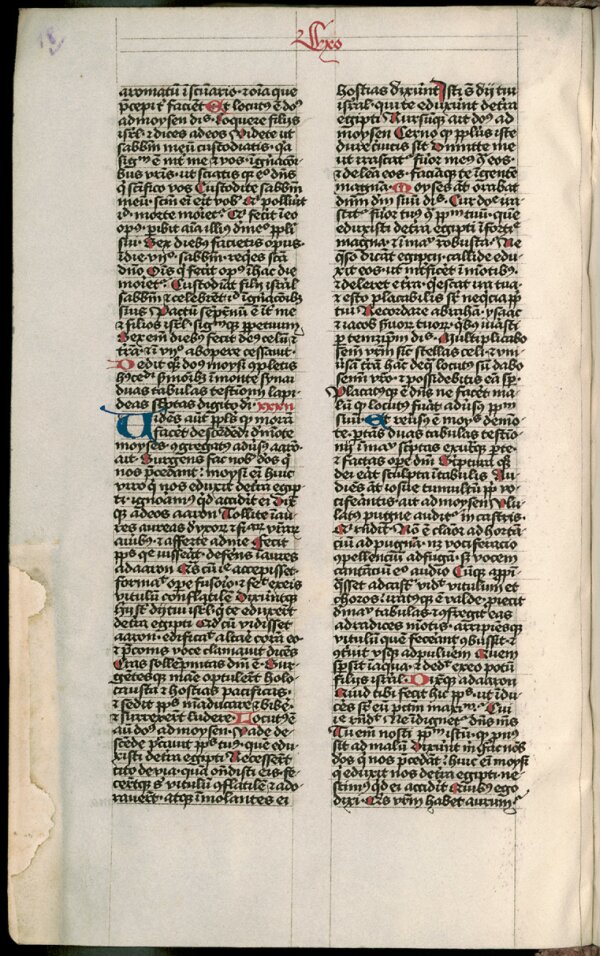 Exo
aromatū ī scūarío · ⁊ oīa que
p̄cepi t̄ faciēt Et locut᷒ ē do᷒
ad moysen di᷒ · Loquere filijs
isrl̄ ⁊ dices ad eos Videte ut
sabbm̄ meū custodiatis · q̄a
sigᵐ ē int̄ me ⁊ vos · ī gnac̄oı̄
bus vr̄is · ut sciatis qꝛ eḡ dn̄s
q̄ sc̄ifico vos Custodite sabbm̄
meū · scm̄ ei ē it vob᷒ Q̄ pollu̅it
id · morte moriet᷒ Q̄ fecit ī eo
op᷒ · p̱ibit aīa illi᷒ d̄ me᷒ ppl̄i
sui · Sex dieb᷒ facietis opus ·
ī die · vij° · sabbm̄ · reqes sc̄a
dn̄o Oīs q̄ fecit op᷒ ī hac die
moriet᷒ Custodiāt filij isrāl
sabbm̄ ⁊ celebrēt id ī gnac̄oīb᷒
suis Pactū sēpn̄ū ē īt me
⁊ filios isrl̄ · sigᵐqꝫ ppetuum
Sex em̄ dieb᷒ fecit de᷒ celū ⁊
tr̄ā · ⁊ ī vij° ab ope̅re cessauit ·
Dedit qꝫ do᷒ moysi 9pletis
h᷒cemōı̄ sm̄oīb᷒ ī monte synai
duas tabulas testioīj lapi
deas sc̄ptas digito di · xxxii
Uidēs aūt ppl̄s q̄ morā
facet descēdēdi d̄ mōte
moyses 9gregat᷒ adūs᷒ aarō
ait · Surgens fac nob̄ dos q̄
nos p̄cedant · moysi ei̅ huic
viro q̄ nos eduxit de tr̄a egip
ti · ignoam᷒ qd accidit ei Dix̄
qꝫ ad eos aaron Tollite īau
res aureas
auib᷒ ⁊ afferte ad me Fecit
pp̄s qe iusserāt · deferens īaures
ad aaron Q̄s cū ıe accepisset ·
formaᵗ ope̅ fusoío · ⁊ fec̄ ex eis
vitulū conflatilē Dixūntqꝫ
hij sr̄ dij tui isrl̄ q te eduxert̄
de tr̄a egipti Qd cū vidisset
aaron · edificaᵗ altaē corā eo ·
⁊ p̄conis voce clamauit dicēs
Cras sollēpnitas dnī ē · Sur
gētesqꝫ mae optulert̄ holo
causta ⁊ hostias pacificas ·
⁊ sedit pp̄s māducare ⁊ bibē
⁊ surrexert̄ ludere · Locut᷒ ē
au̅t do᷒ ad moysen · Vade de ·
scēde pc̄auit pp̄s tu᷒ · que edu ·
xisti de tr̄a egipti Recessert̄
cito de via · quā oñdisti eis · fe
cert̄qꝫ s᷒ vitulū 9flatilē ⁊ ado ·
rauert̄ · atqꝫ īmolantes ei
hostias dixūnt Isti s̄ dij tui
isrāl · qui te eduxūnt de tr̄a
egipti Rursūqꝫ ait do᷒ ad
moysen Cerno q̄ ppl̄us iste
dure ceruicis sit Dimitte me
ut irascat᷒ fuor me᷒ 9̄ eos ·
⁊ deleā eos · faciāqꝫ te ī gente
magnā · Moyses āt orabat
dnm̄ dm̄ suū di᷒ · Cur dōe ira
scit᷒ fuor tu᷒ 9̄ ppᵐ tuū · que
eduxisti de tr̄a egipti ī forti ·
magna · ⁊ ī manu robusta · Ne
qso dicāt egiptij · callide edu ·
xit eos · ut int̄ficet ī motib᷒ ·
⁊ deleret e tr̄a · q̄escat ira tua ·
⁊ esto placabilis sr̄ neq̄cia pp̄
tui Recordare abrahā · ysaac
⁊ iacob s̄uor tuor · q̄b᷒ iuasti
p̱ temetipm̄ di᷒ · Multiplicabo
semē vrm̄ sic̄ stellas celi · ⁊ vni
ūsā tr̄ā hāc deqꝫ locut᷒ sū dabo
semī vr̄o · ⁊ possidebitis eā sp̱ ·
Placat᷒qꝫ ē dn̄s ne facēt ma
lū q̄ locut᷒ fūat adūs᷒ ppᵐ
suū · Et reūs᷒ ē moyˢ de mō
te · p̱tās duas tabulas testio
nij ī maᵘ sc̄ptas ex utqꝫ p̱te ·
⁊ factas ope̅ dnī Sc̄ptura qꝫ
dei eāt sculpta ī tabulis Au
diēs āt iosue tumultū pp̄ vo
cifeantis · ait ad moysen Vlu
lat᷒ pugne audit᷒ ī castris ·
Q̄ rn̄dit · Nō ē claōr adhortā
ciū ad pugnā · nͨ vociferacio
9pellenciū ad fugā · sꝫ vocem
cantāciū eḡ audio Cūqꝫ app̱i
q̄sset ad castᵃ vidᵗ vitulum et
choros · iratusqꝫ ē valde · p̱iecit
d̄ maᵘ tabulas ⁊ 9fregit eas
ad radices mōtis · arripiēsqꝫ
vitulū quē fecēant 9bussit · ⁊
9tūit vsqꝫ ad puluem Quem
sp̱sit ī aqua · ⁊ dedᵗ ex eo potū
filijs isrāl · Dixitqꝫ ad aaron
Quid tibi fecit hic pp̄s · ut īdu
cēs sr̄ eū pctm̄ maxīᵐ · Cui
ıe rn̄dᵗ · Ne īdignet᷒ dn̄s m̄s
Tu em̄ nosti ppᵐ istū · q̄ pn᷒
sit ad malū Dixūnt m̄ fac nob̄
dos q̄ nos p̄cedāt · huic ei̅ moysi
q̄ eduxit nos de tr̄a egipti · ne
scim᷒ qd ei accidit Quib᷒ ego
dixi · Q̄s vr̄m habet aurum ·